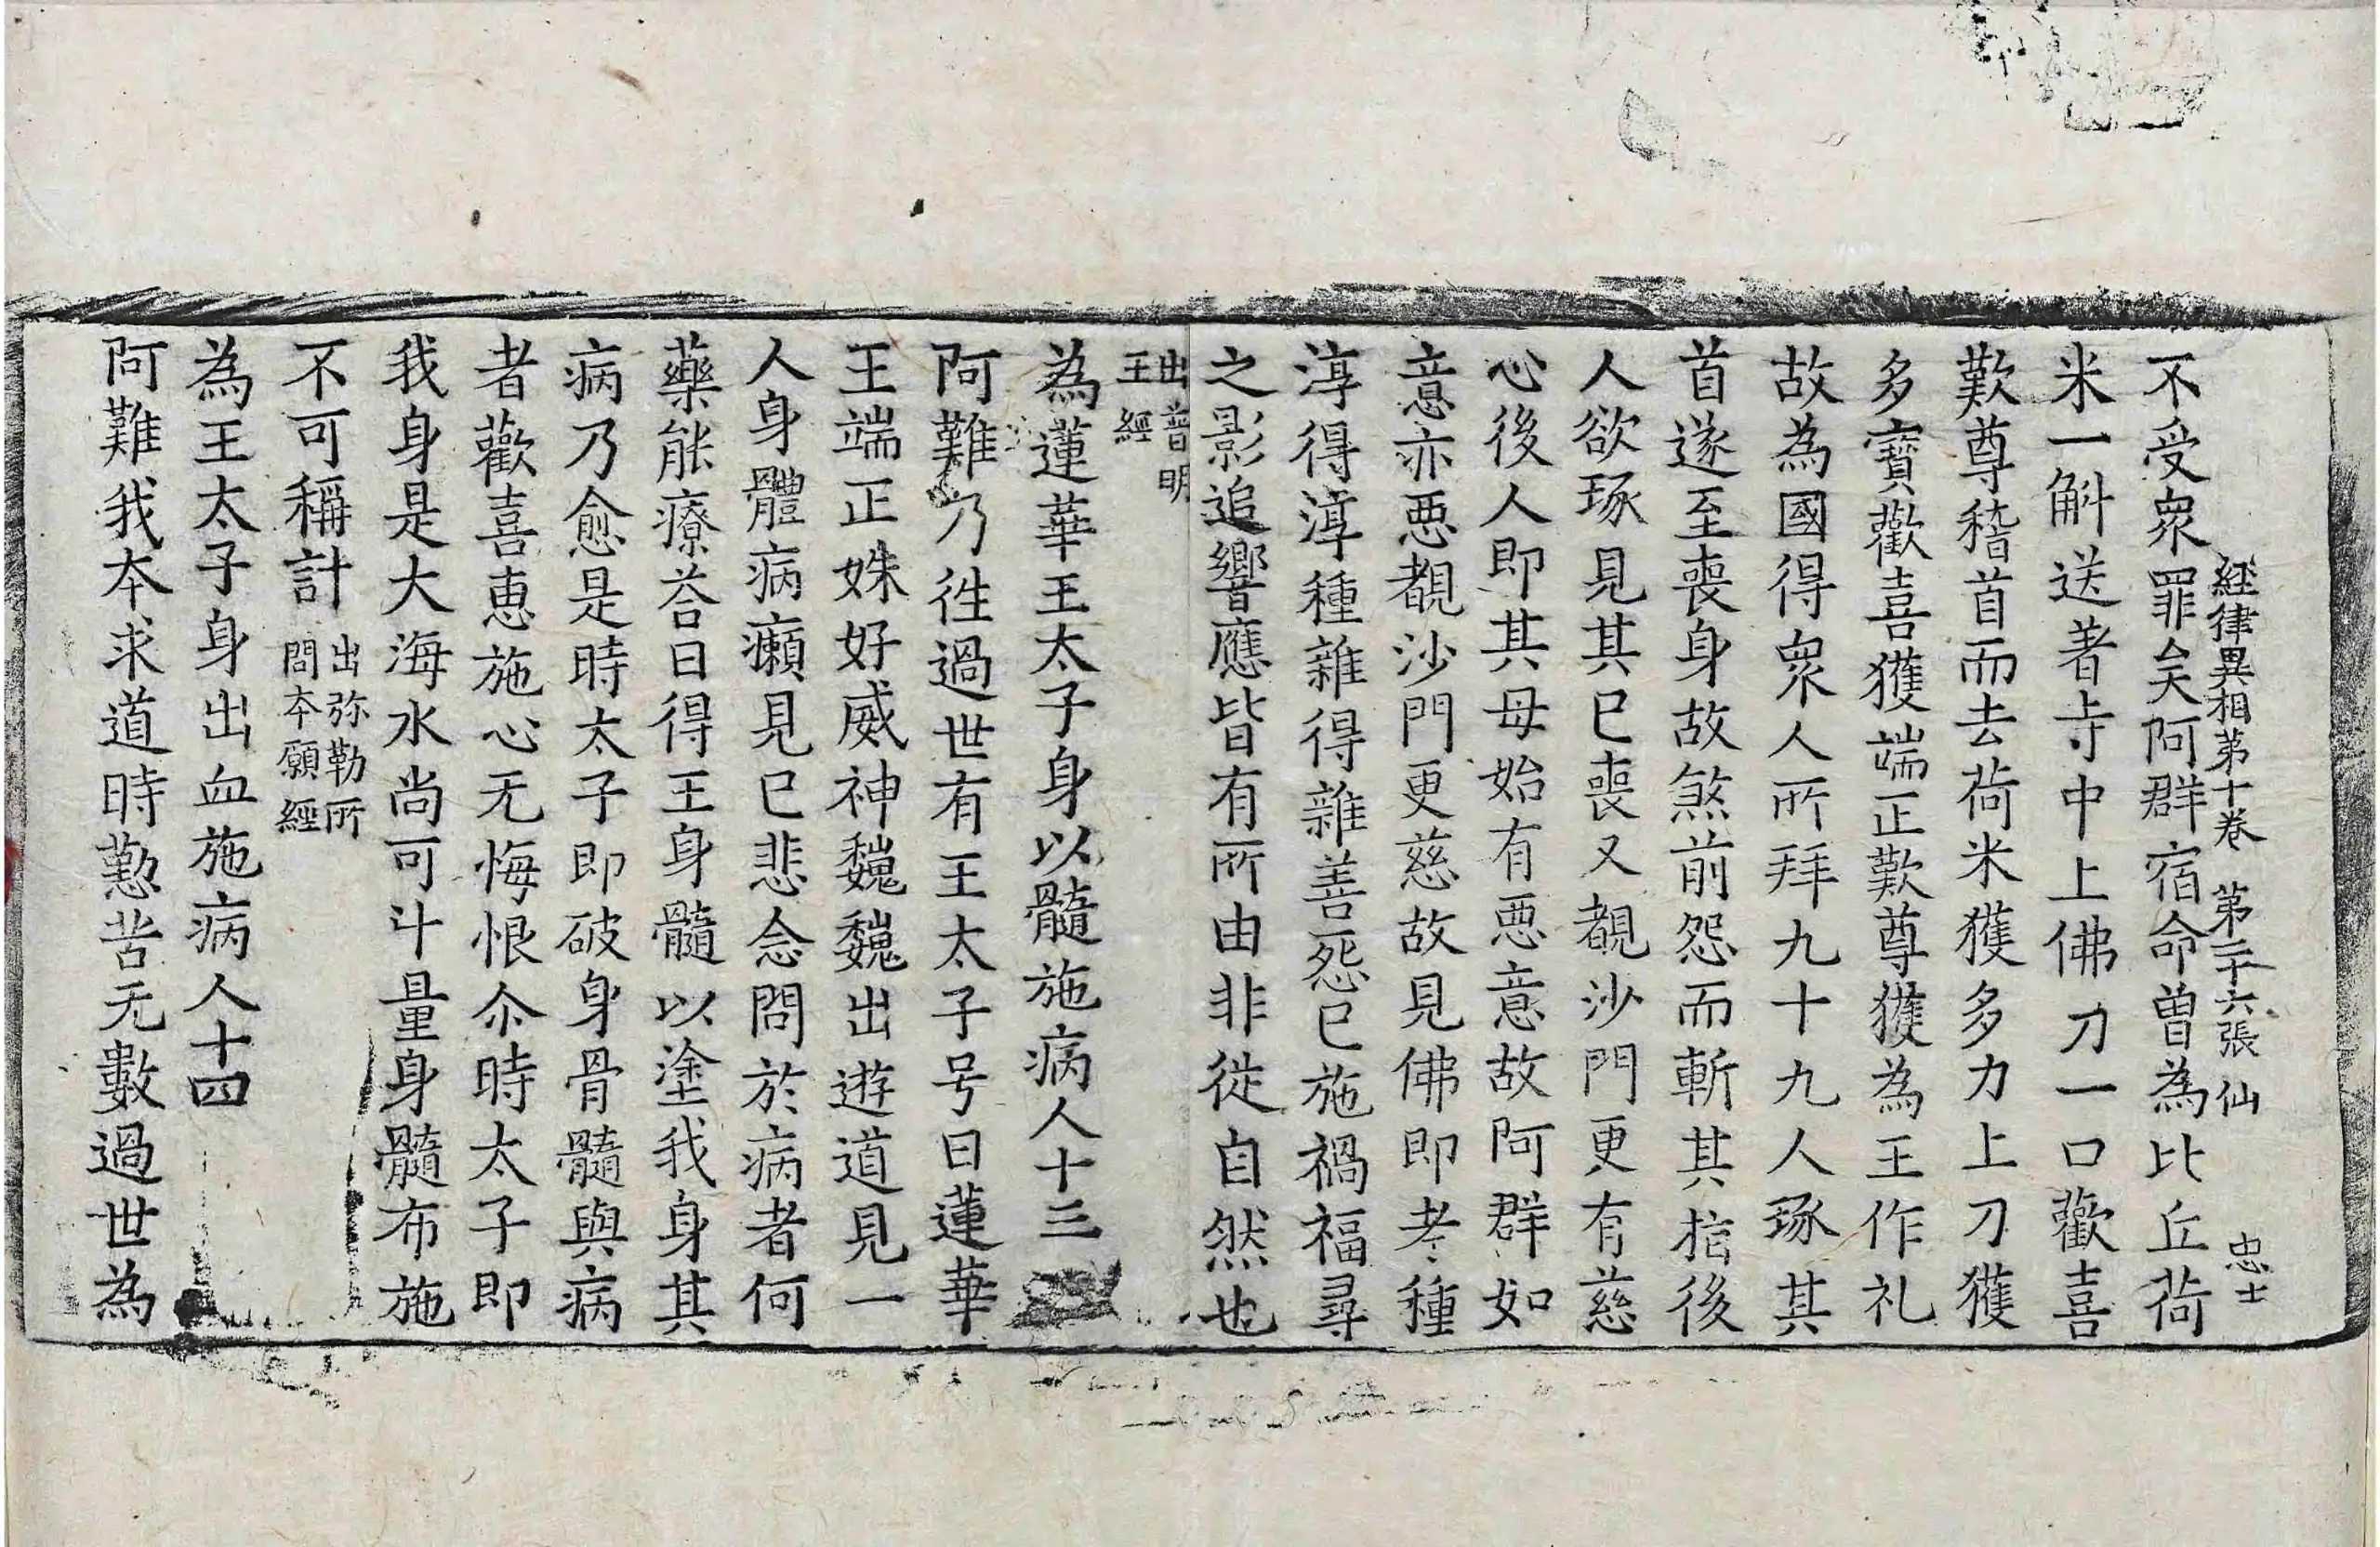 經律異相第十卷 第二十六張 仙 忠士
不受眾罪矣阿群宿命曾為比丘荷
米一斛送著寺中上佛刀一口歡喜
歎尊稽首而去荷米獲多力上刀獲
多寶歡喜獲端正歎尊獲為王作礼
故為國得眾人所拜九十九人琢其
首遂至喪身故煞前怨而斬其指後
人欲琢見其已喪又覩沙門更有慈
心後人即其母始有惡意故阿群如
意亦惡覩沙門更慈故見佛即孝種
淳得淳種雜得雜善惡已施禍福尋
之影追響應皆有所由非從自然也
出普明
王經
為蓮華王太子身以髓施病人十三
阿難乃往過世有王太子号曰蓮華
王端正姝好威神巍巍出遊道見一
人身體病癩見已悲念問於病者何
藥能療荅曰得王身髓以塗我身其
病乃愈是時太子即破身骨髓與病
者歡喜惠施心无悔恨尒時太子即
我身是大海水尚可斗量身髓布施
不可稱計 出弥勒所
問本願經
為王太子身出血施病人十四
阿難我本求道時懃苦无數過世為